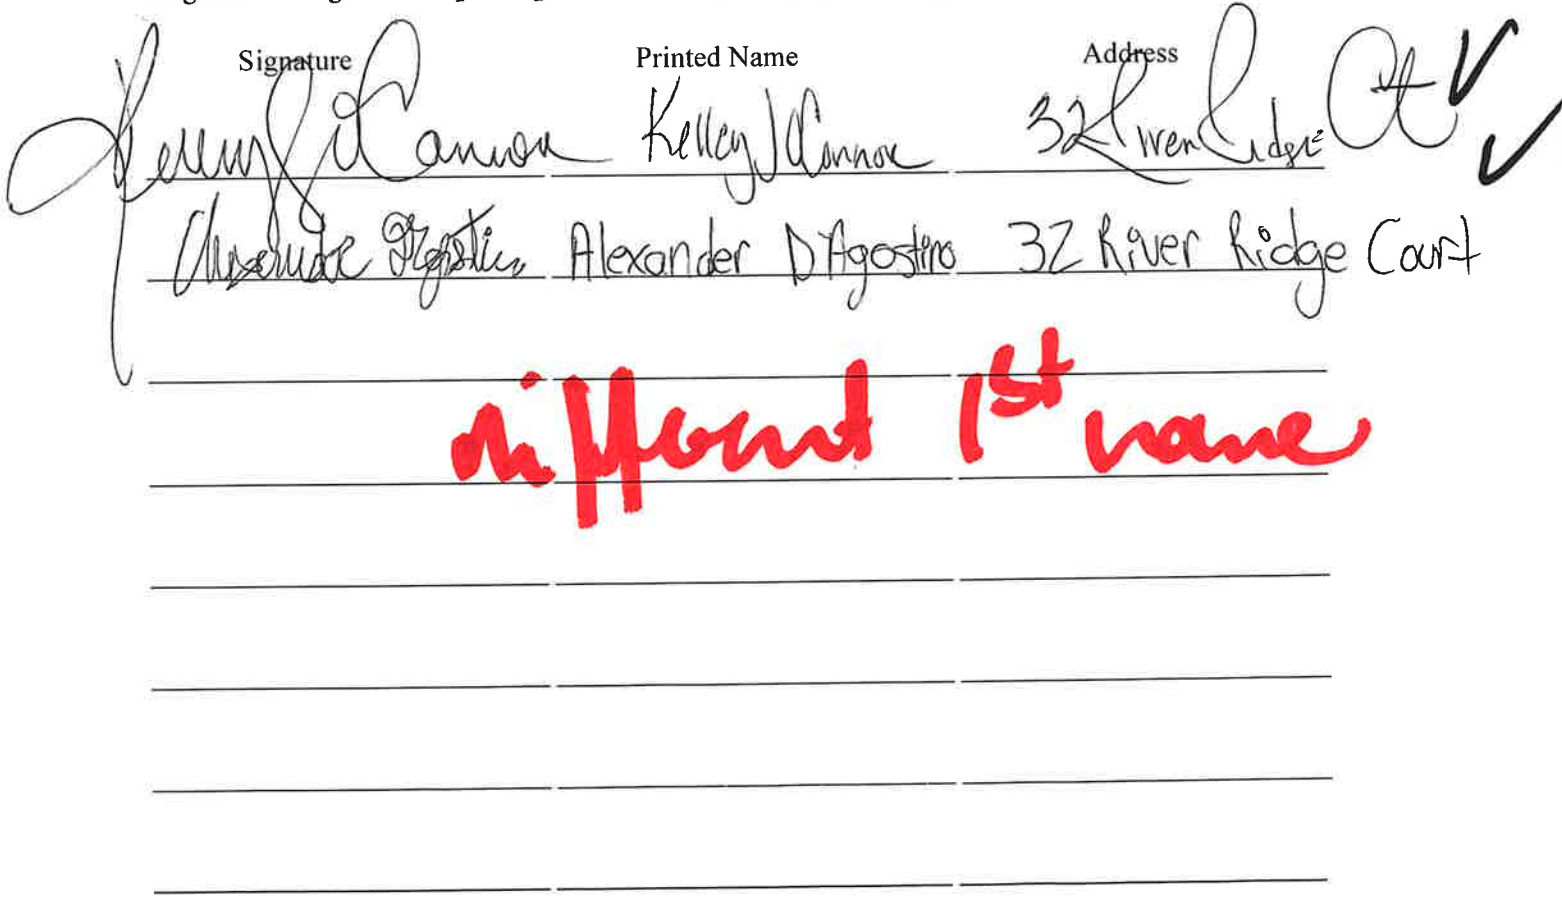 Signature Printed Name Address
Kelley J O'Connor Kelley J O'Connor 32 River Ridge Ct
Alexander D'Agostino 32 River Ridge Court
different 1st name